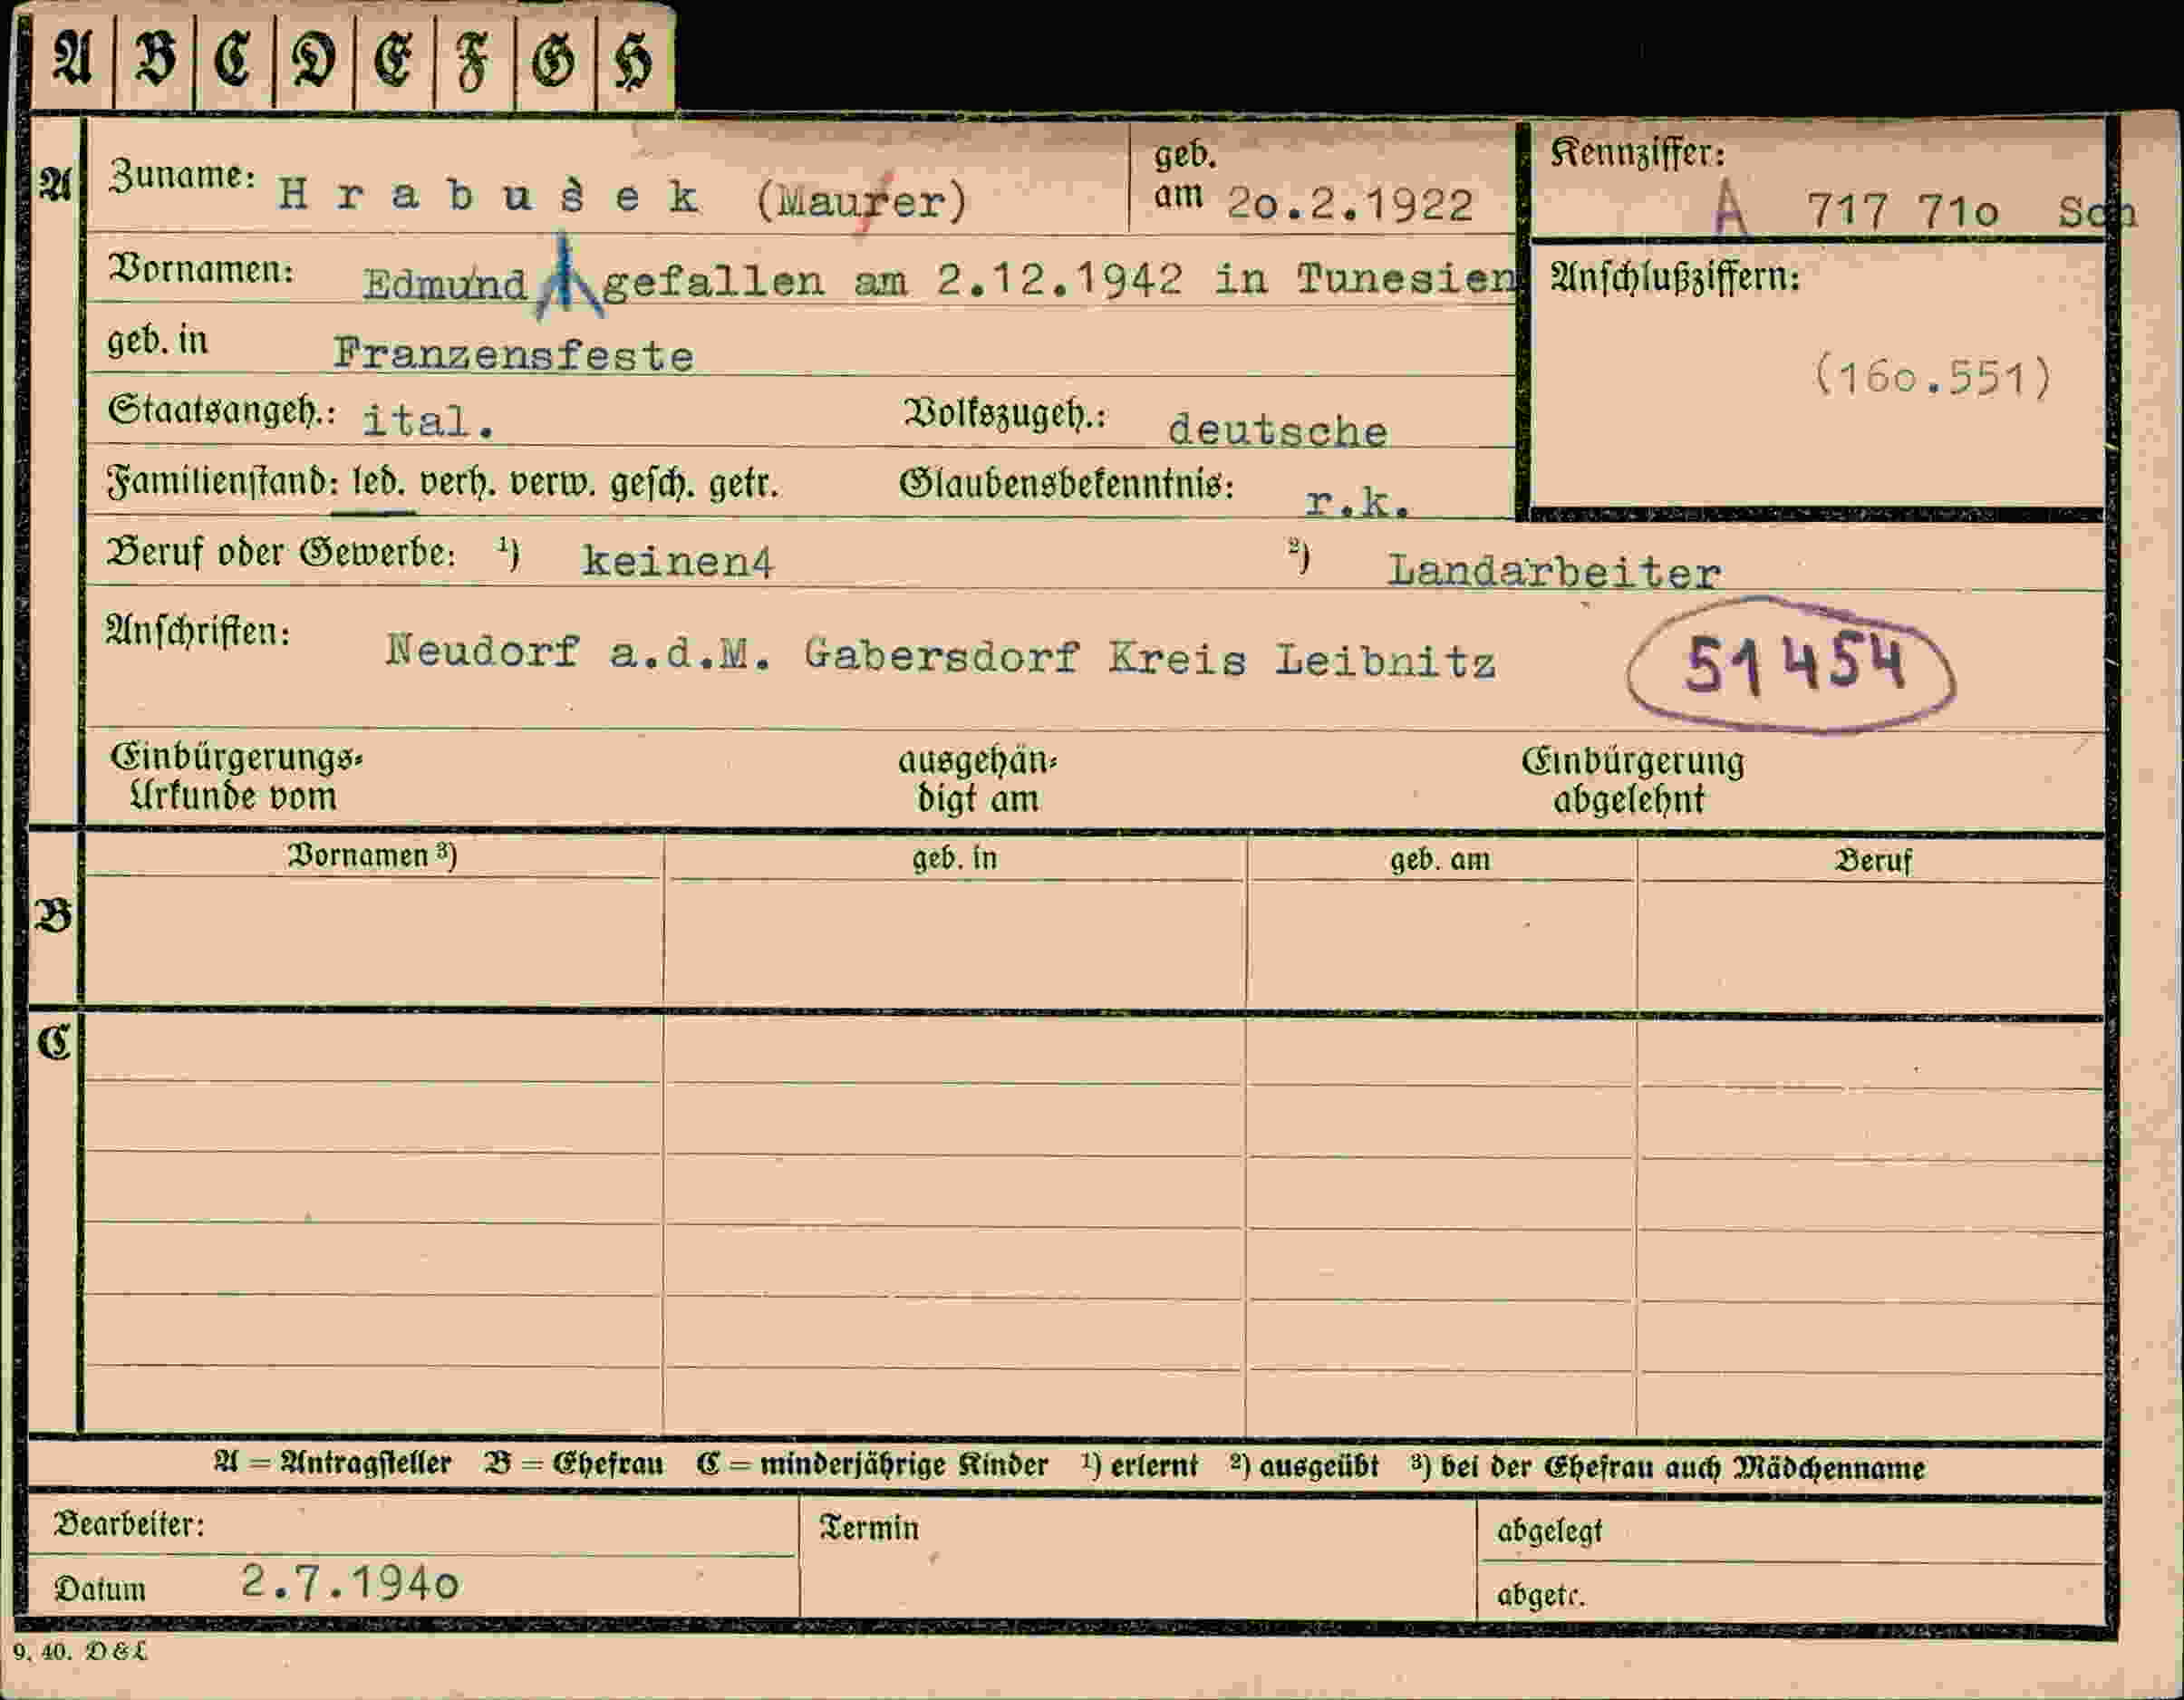 A B C D E F G H
A
Zuname: Hrabušek (Maurer) geb. am 20.2.1922
Kennziffer: A 717 710 Sch
Vornamen: Edmund gefallen am 2.12.1942 in Tunesien
Anschlußziffern: (160.551)
geb. in Franzensfeste
Staatsangeh.: ital. Volkszugeh.: deutsche
Familienstand: led. verh. verw. gesch. getr. Glaubensbekenntnis: r.k.
Beruf oder Gewerbe: 1) keinen4 2) Landarbeiter
Anschriften: Neudorf a.d.M. Gabersdorf Kreis Leibnitz 51454
Einbürgerungs- ausgehän- Einbürgerung
Urkunde vom digt am abgelehnt
Vornamen 3) geb. in geb. am Beruf
B
C
A = Antragsteller B = Ehefrau C = minderjährige Kinder 1) erlernt 2) ausgeübt 3) bei der Ehefrau auch Mädchenname
Bearbeiter: Termin abgelegt
Datum 2.7.1940 abgetr.
9. 40. D & L